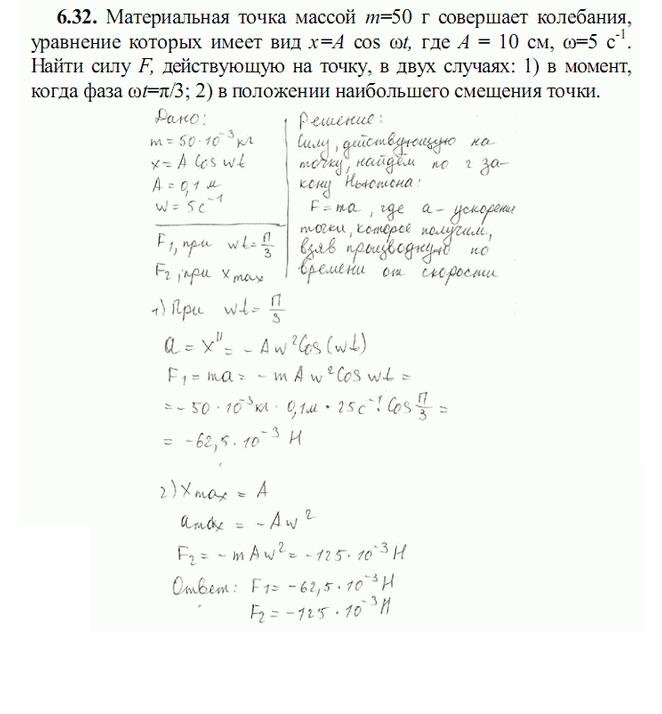 6.32. Материальная точка массой m=50 г совершает колебания,
уравнение которых имеет вид x=A cos ωt, где A = 10 см, ω=5 с⁻¹.
Найти силу F, действующую на точку, в двух случаях: 1) в момент,
когда фаза ωt=π/3; 2) в положении наибольшего смещения точки.
Дано:
m = 50·10⁻³ кг
x = A Cos wt
A = 0,1 м
w = 5с⁻¹
F₁, при wt = П/3
F₂, при x max
Решение:
Силу, действующую на
точку, найдём по 2 за-
кону Ньютона:
F = ma, где a - ускорение
точки, которое получим,
взяв производную по
времени от скорости
1) При wt = П/3
a = x'' = - Aw² Cos(wt)
F₁ = ma = - m A w² Cos wt =
= - 50·10⁻³кг · 0,1м · 25с⁻¹· Cos П/3 =
= -62,5·10⁻³ Н
2) x max = A
a max = - Aw²
F₂ = - mAw² = -125·10⁻³ Н
Ответ: F₁ = -62,5·10⁻³ Н
F₂ = -125·10⁻³ Н